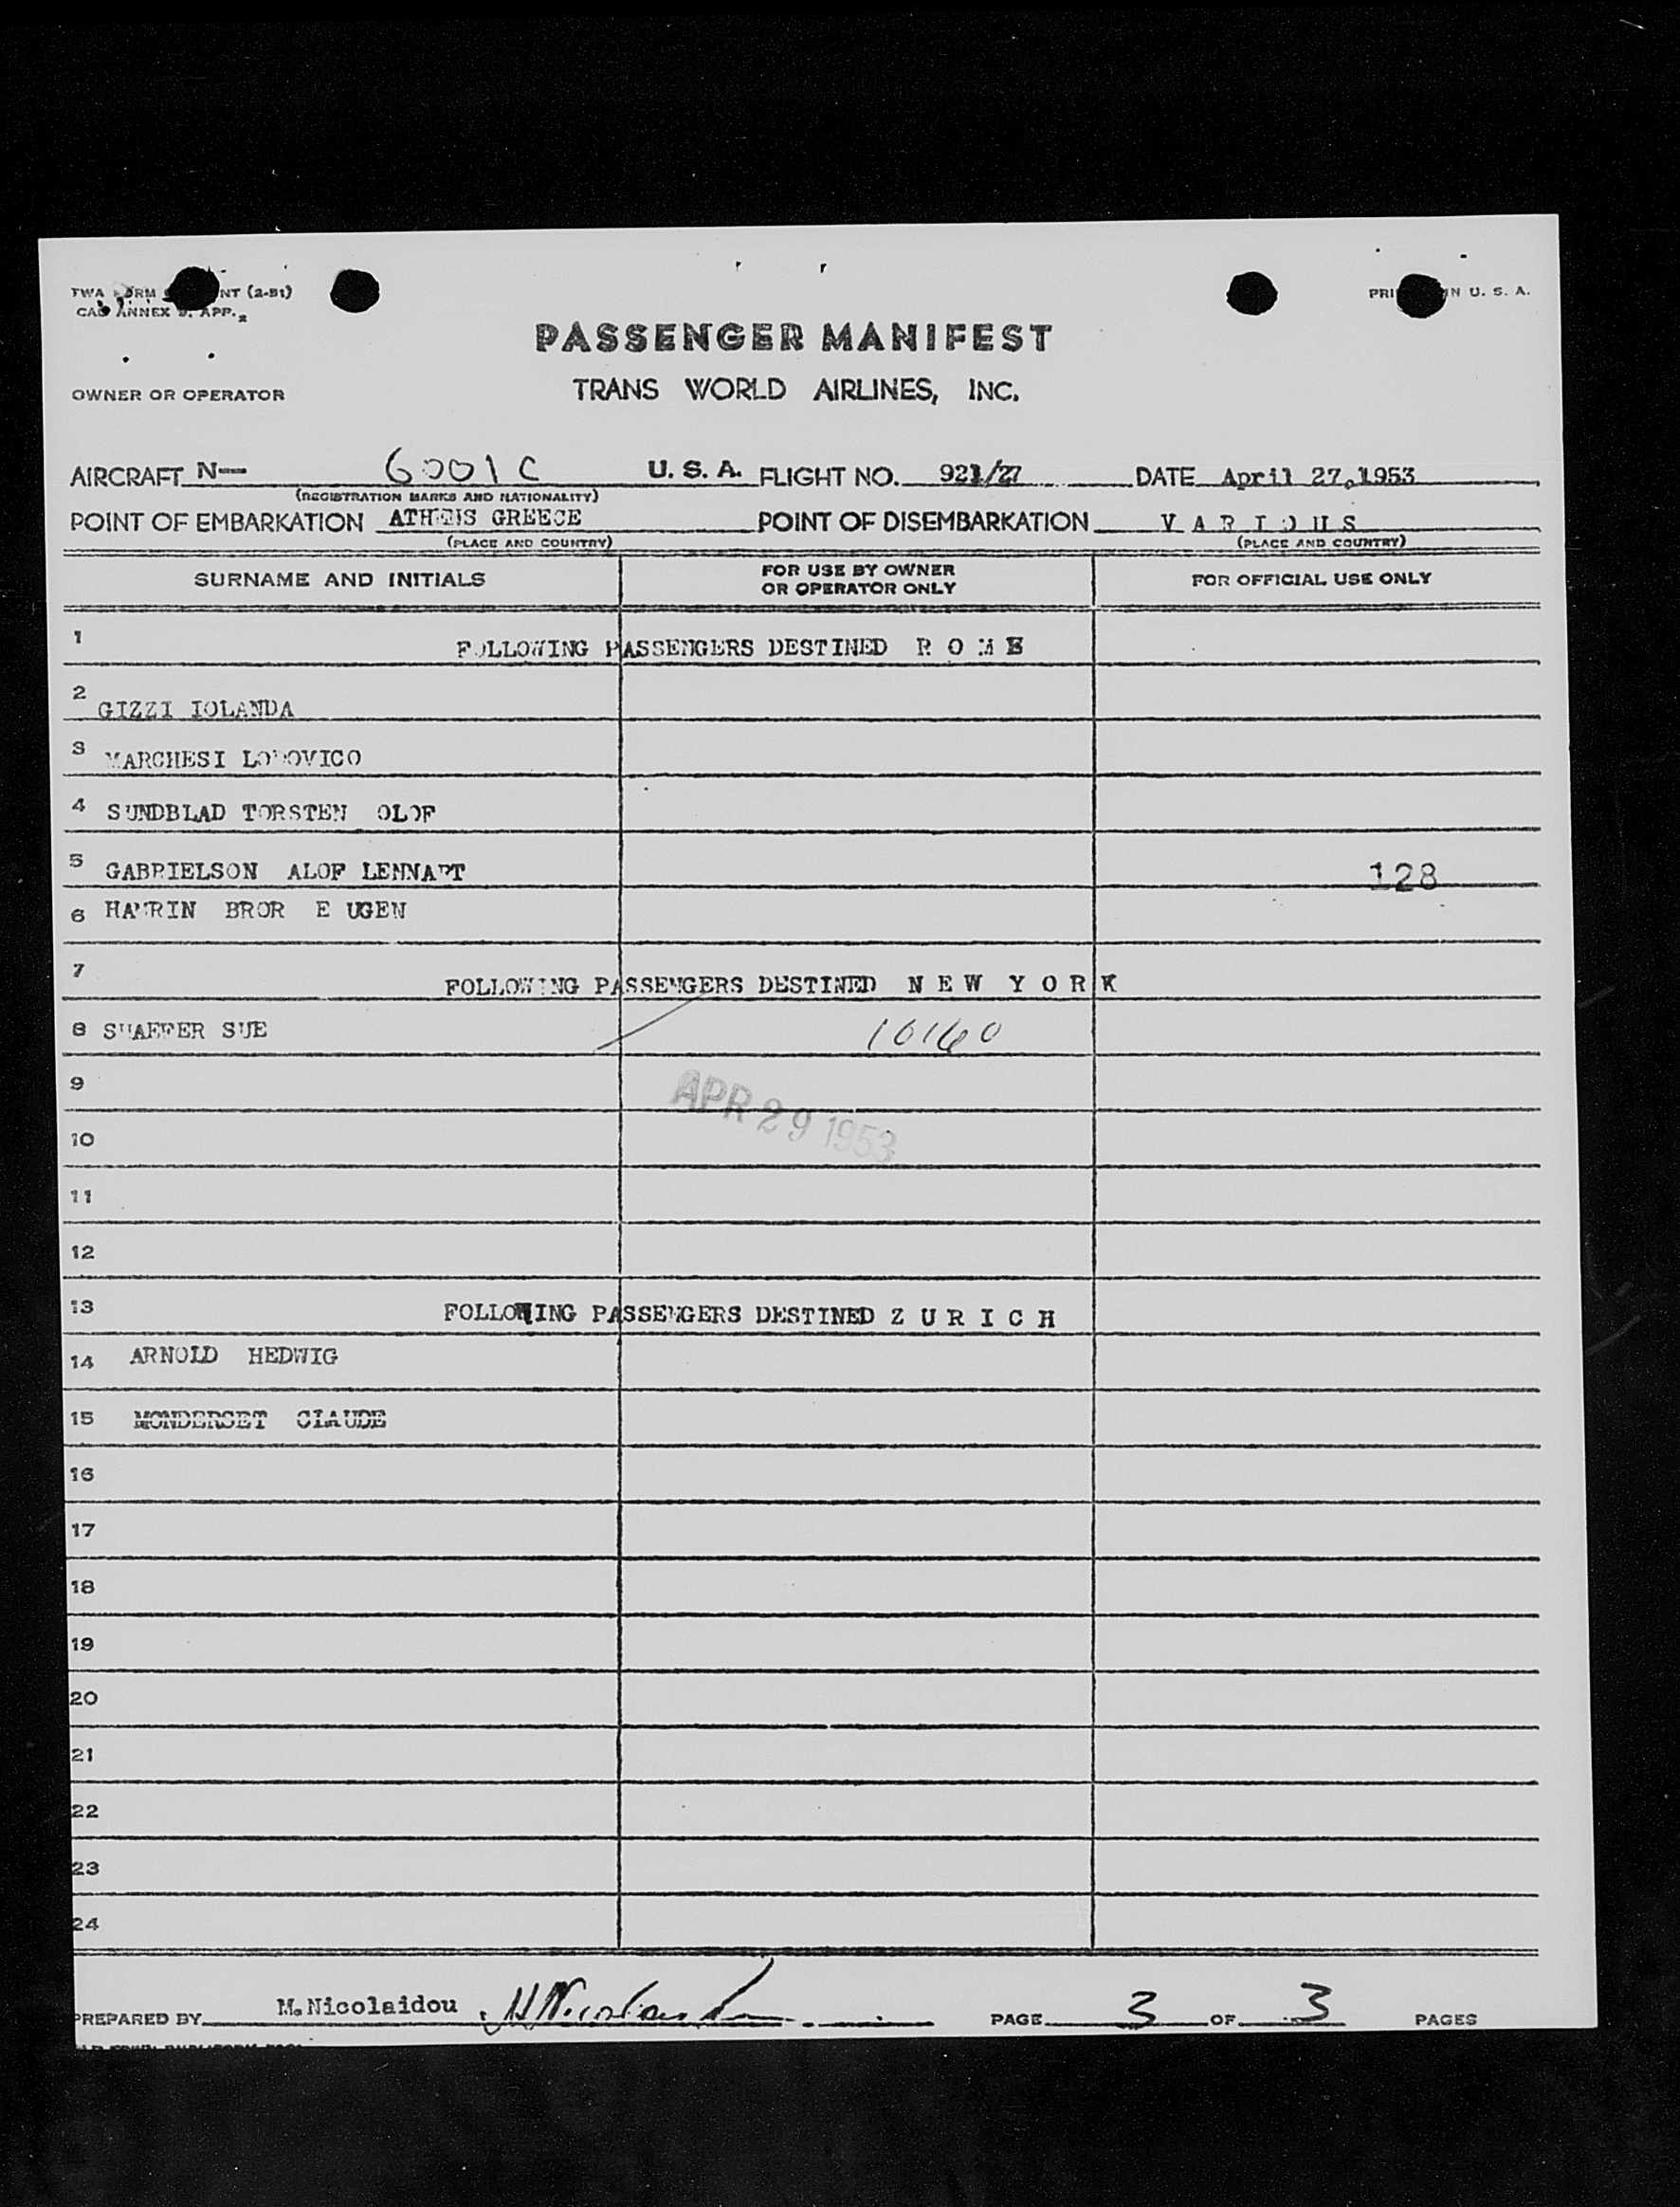 TWA FORM NT (2-51) PRI IN U. S. A.
CAB ANNEX 9, APP. 2
PASSENGER MANIFEST
OWNER OR OPERATOR TRANS WORLD AIRLINES, INC.
AIRCRAFT N— 6001C U. S. A. FLIGHT NO. 921/27 DATE April 27,1953
(REGISTRATION MARKS AND NATIONALITY)
POINT OF EMBARKATION ATHENS GREECE POINT OF DISEMBARKATION V A R I O U S
(PLACE AND COUNTRY) (PLACE AND COUNTRY)
SURNAME AND INITIALS FOR USE BY OWNER OR OPERATOR ONLY FOR OFFICIAL USE ONLY
1 FOLLOWING PASSENGERS DESTINED R O M E
2 GIZZI IOLANDA
3 MARCHESI LODOVICO
4 SUNDBLAD TORSTEN OLOF
5 GABRIELSON ALOF LENNART 128
6 HAMRIN BROR E UGEN
7 FOLLOWING PASSENGERS DESTINED N E W Y O R K
8 SHAEFFER SUE 10160
9
APR 29 1953
10
11
12
13 FOLLOWING PASSENGERS DESTINED Z U R I C H
14 ARNOLD HEDWIG
15 MONDERSET CLAUDE
16
17
18
19
20
21
22
23
24
PREPARED BY M.Nicolaidou PAGE 3 OF 3 PAGES